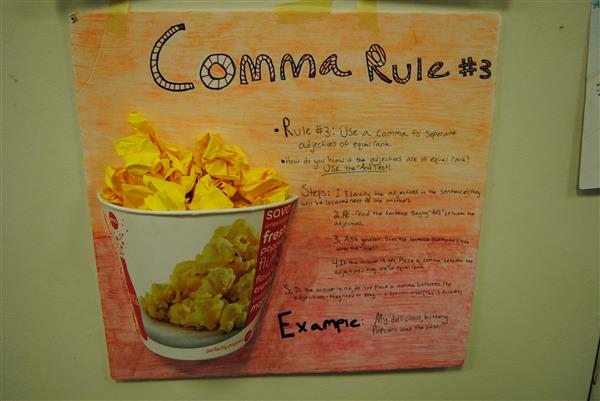 31
Comma Rule #3
• Rule #3: Use a comma to seperate
adjectives of equal rank.
• How do you know is the adjectives are of equal rank?
Use the "And Test!
Steps: 1. Identify the adjectives in the sentence (they
will be located next to one another).
2. Re-read the sentence saying "AND" between the
adjectives.
3. Ask yourself: Does the sentence
4. If the answer is yes, place a comma between the
adjectives - they are of equal rank.
5. If the answer is no, do not place a comma between the
adjectives - they need to stay in a specific order
Example: My delicious, buttery
popcorn was the best.
savo
fresh
popco
perfectly popped